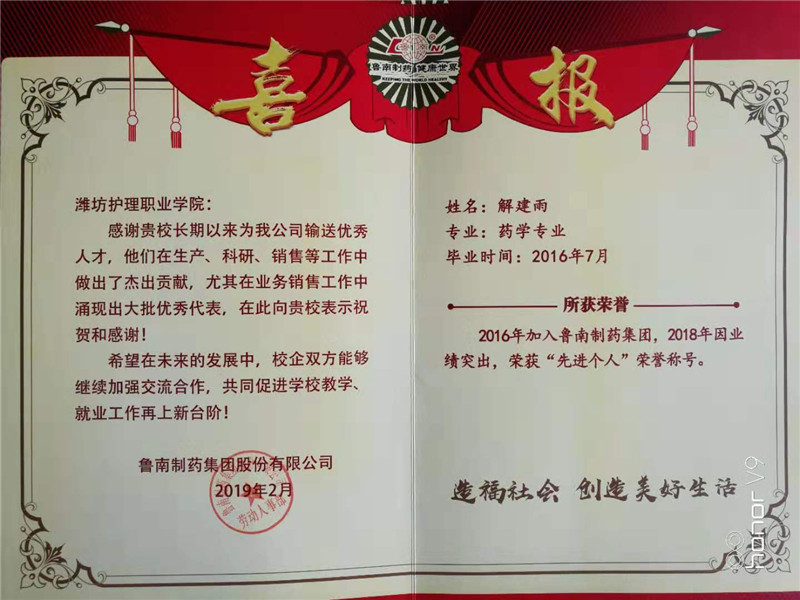 喜报
LN
鲁南制药 健康世界
KEEPING THE WORLD HEALTHY
潍坊护理职业学院：
感谢贵校长期以来为我公司输送优秀
人才，他们在生产、科研、销售等工作中
做出了杰出贡献，尤其在业务销售工作中
涌现出大批优秀代表，在此向贵校表示祝
贺和感谢！
希望在未来的发展中，校企双方能够
继续加强交流合作，共同促进学校教学、
就业工作再上新台阶！
鲁南制药集团股份有限公司
2019年2月
劳动人事
姓名：解建雨
专业：药学专业
毕业时间：2016年7月
所获荣誉
2016年加入鲁南制药集团，2018年因业
绩突出，荣获“先进个人”荣誉称号。
造福社会 创造美好生活
honor V9